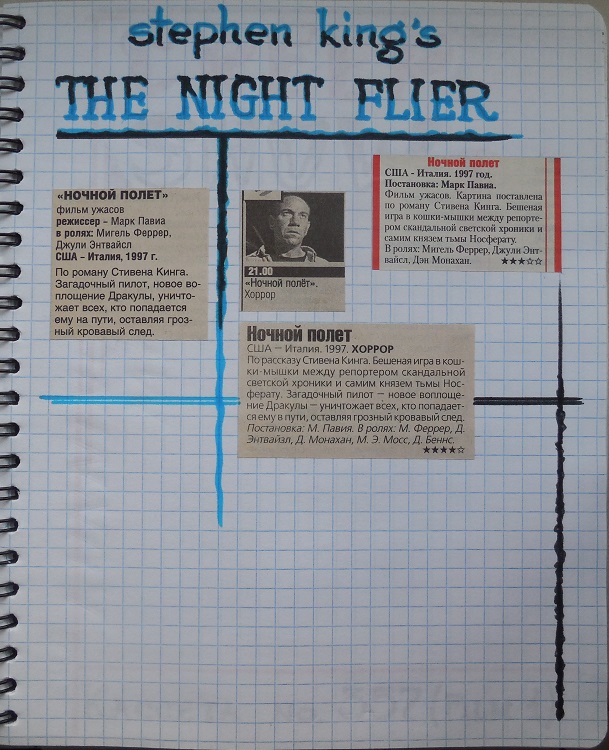 stephen king's
THE NIGHT FLIER
«НОЧНОЙ ПОЛЕТ»
фильм ужасов
режиссер – Марк Павиа
в ролях: Мигель Феррер,
Джули Энтвайсл
США - Италия, 1997 г.
По роману Стивена Кинга.
Загадочный пилот, новое во-
площение Дракулы, уничто-
жает всех, кто попадается
ему на пути, оставляя гроз-
ный кровавый след.
21.00
«Ночной полёт».
Хоррор
Ночной полет
США - Италия. 1997 год.
Постановка: Марк Павиа.
Фильм ужасов. Картина поставлена
по роману Стивена Кинга. Бешеная
игра в кошки-мышки между репорте-
ром скандальной светской хроники и
самим князем тьмы Носферату.
В ролях: Мигель Феррер, Джули Энт-
вайсл, Дэн Монахан. ★★★☆☆
Ночной полет
США — Италия. 1997. ХОРРОР
По рассказу Стивена Кинга. Бешеная игра в кош-
ки-мышки между репортером скандальной
светской хроники и самим князем тьмы Нос-
ферату. Загадочный пилот — новое воплоще-
ние Дракулы — уничтожает всех, кто попадает-
ся ему в пути, оставляя грозный кровавый след.
Постановка: М. Павия. В ролях: М. Феррер, Д.
Энтвайзл, Д. Монахан, М. Э. Мосс, Д. Беннс.
★★★★☆